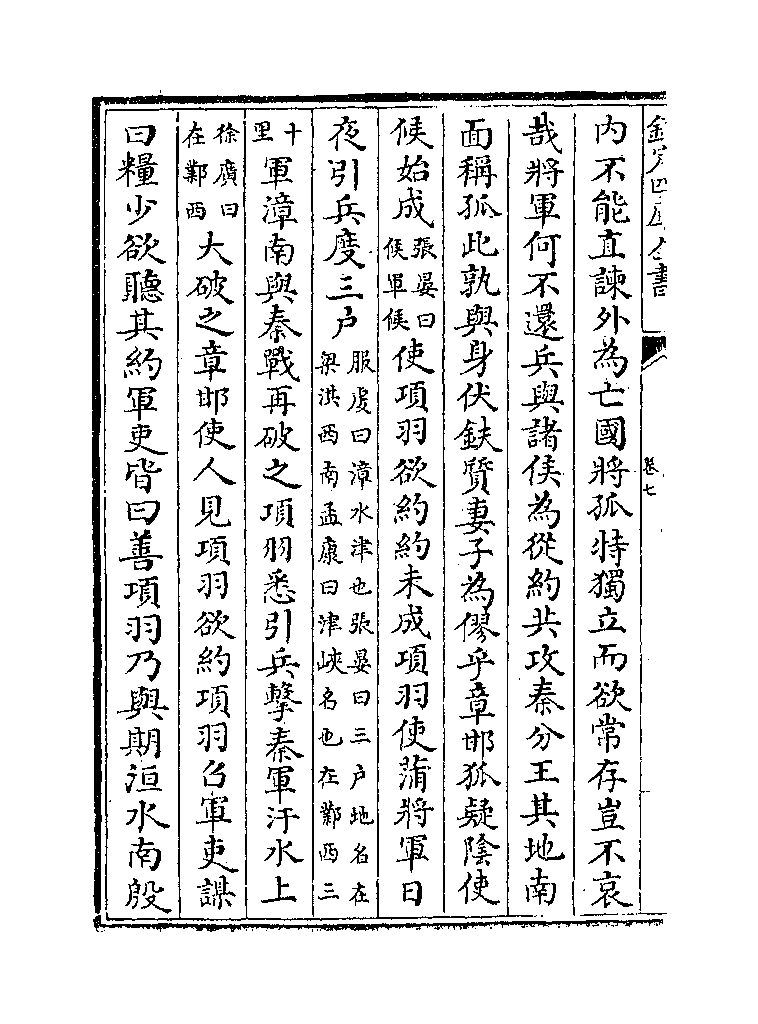 欽定四庫全書
卷七
内不能直諫外為亡國將孤特獨立而欲常存豈不哀
哉將軍何不還兵與諸侯為從約共攻秦分王其地南
面稱孤此孰與身伏鈇質妻子為僇乎章邯狐疑隂使
候始成張晏曰候軍候使項羽欲約約未成項羽使蒲將軍日
夜引兵度三户服虔曰漳水津也張晏曰三户地名在梁淇西南孟康曰津峽名也在鄴西三
十里軍漳南與秦戰再破之項羽悉引兵擊秦軍汙水上
徐廣曰在鄴西大破之章邯使人見項羽欲約項羽召軍吏謀
曰糧少欲聽其約軍吏皆曰善項羽乃與期洹水南殷